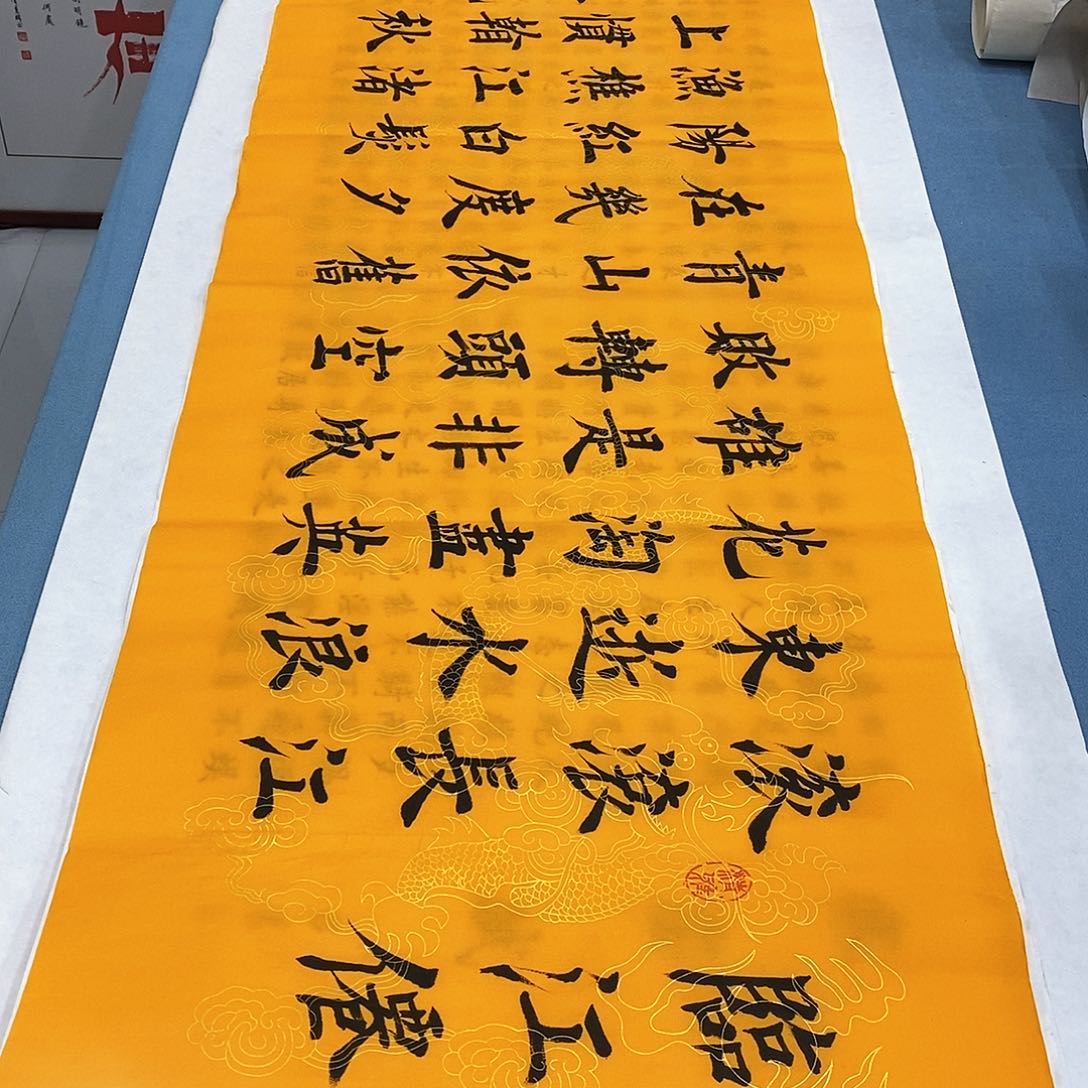 臨江僊
滾滾長江
東逝水浪
花淘盡英
雄是非成
敗轉頭空
青山依舊
在幾度夕
陽紅白髮
漁樵江渚
上慣看秋